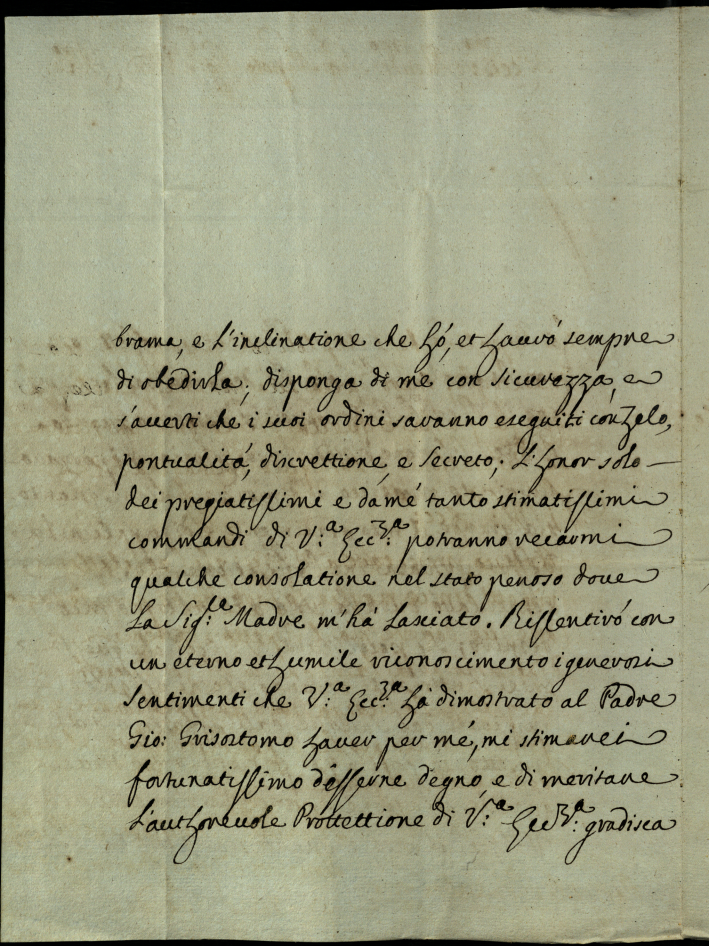 brama, e L'inclinatione che hó, et hauró sempre
di obedirLa; disponga di me con sicurezza, e
s'auerti che i suoi ordini saranno eseguiti con Zelo,
pontualitá, discrettione, e Secreto; L'honor solo
dei pregiatissimi e da mé tanto stimatissimi
commandi di V:a Ecc:za potranno recarmi
qualche consolatione nel stato penoso doue
La Sig:la Madre m'há Lasciato. Rissentiró con
un eterno et humile riconoscimento i generosi
Sentimenti che V:a Ecc:za há dimostrato al Padre
Gio: Grisostomo hauer per mé, mi stimarei
fortunatissimo d'esserne degno, e di meritare
L'authoreuole Prottettione di V:a Ecc:za gradisca